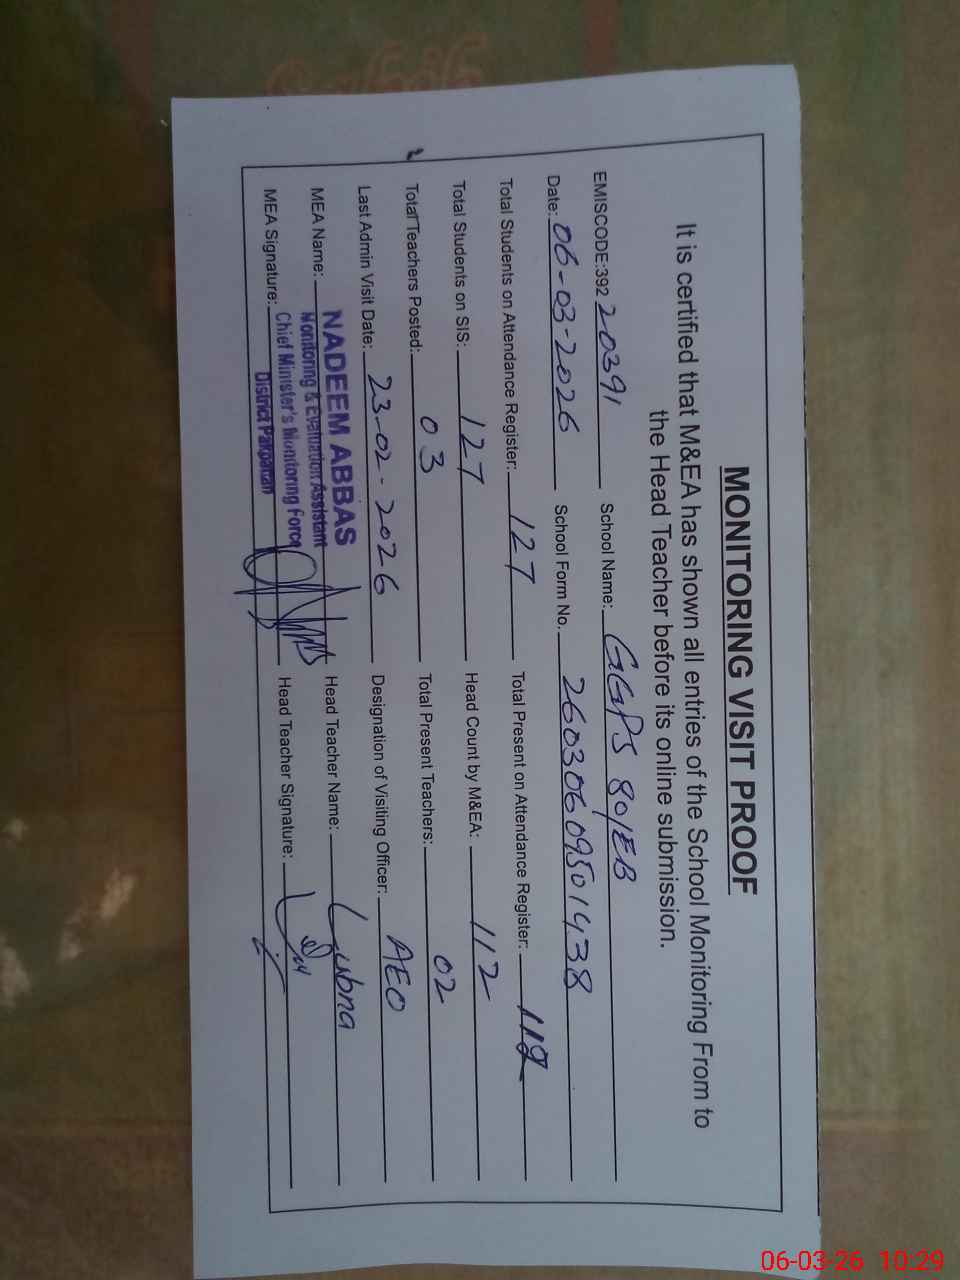 MONITORING VISIT PROOF
It is certified that M&EA has shown all entries of the School Monitoring From to
the Head Teacher before its online submission.
EMISCODE:392 20391 School Name: GGPS 80/EB
Date: 06-03-2026 School Form No. 26030609501438
Total Students on Attendance Register: 127 Total Present on Attendance Register: 112
Total Students on SIS: 127 Head Count by M&EA: 112
Total Teachers Posted: 03 Total Present Teachers: 02
Last Admin Visit Date: 23-02-2026 Designation of Visiting Officer: AEO
MEA Name: NADEEM ABBAS Head Teacher Name: Lubna
Monitoring & Evaluation Assistant
Chief Minister's Monitoring Force
District Pakpattan
MEA Signature: Head Teacher Signature:
06-03-26 10:29